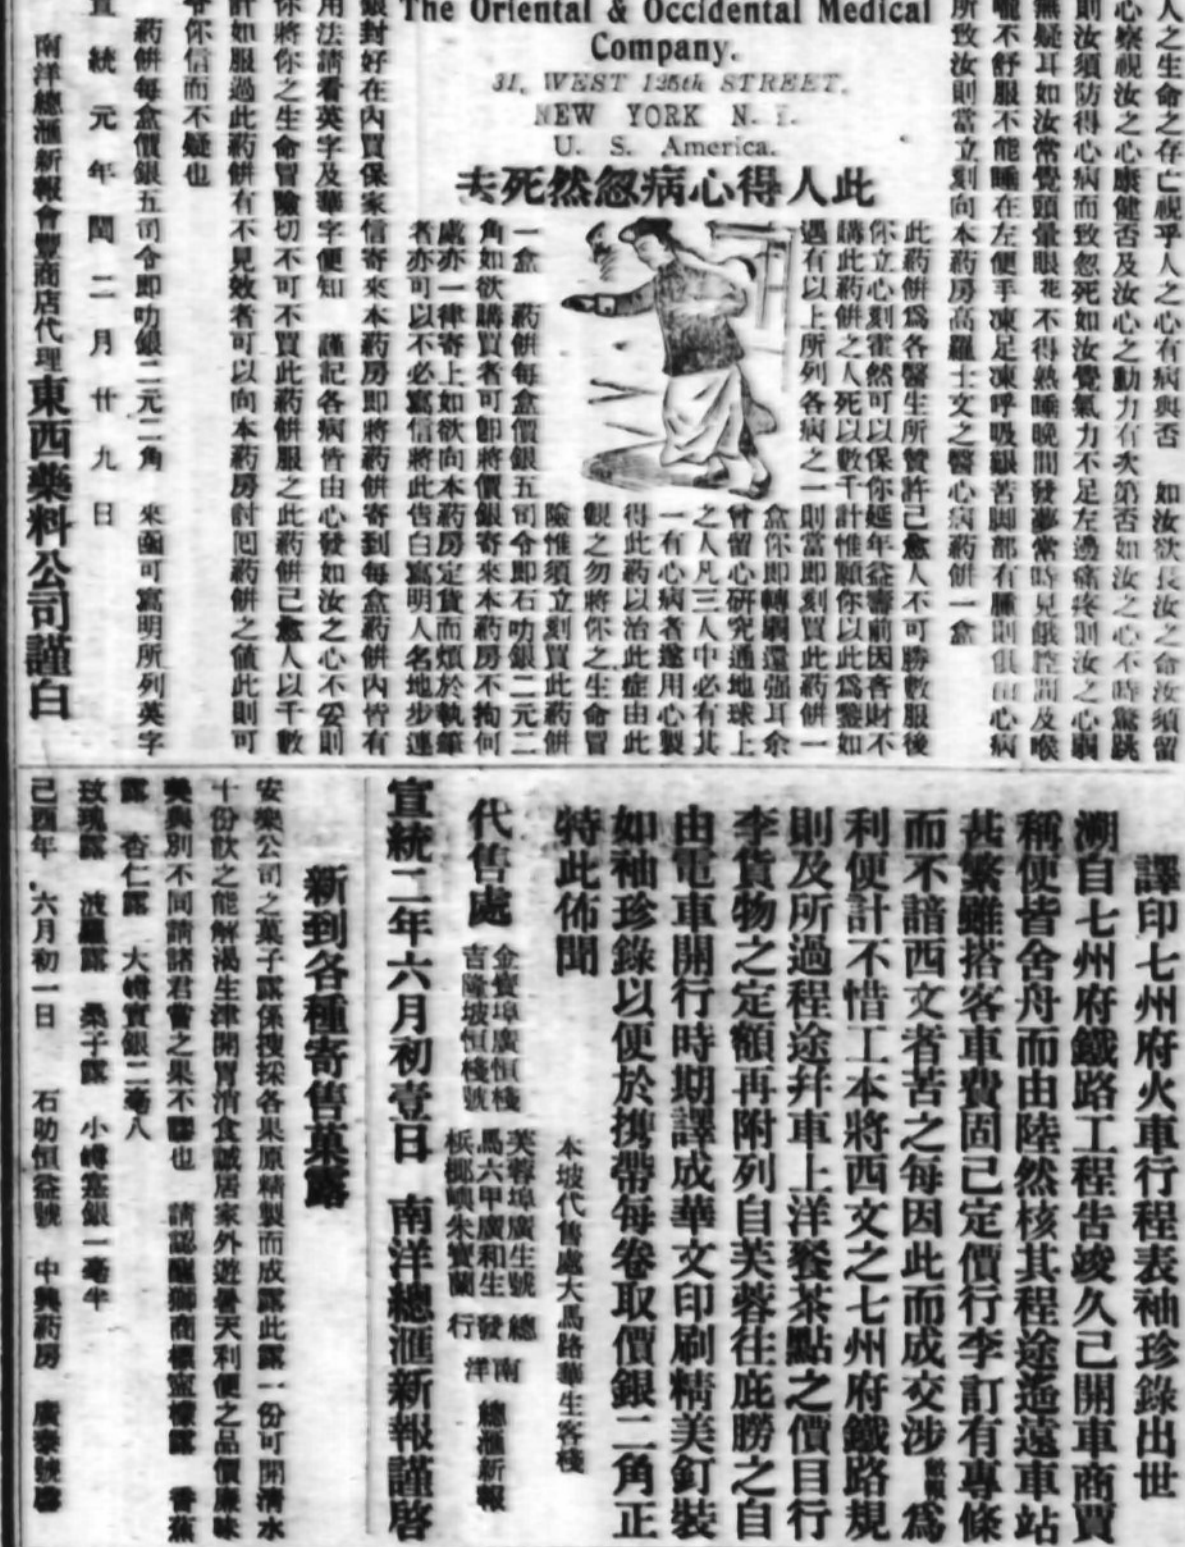 人之生命之存亡視乎人之心有病與否　如汝欲長汝之命汝須留
心察視汝之心康健否及汝心之動力有次第否如汝之心不時驚跳
則汝須防得心病而致忽死如汝覺氣力不足左邊痛疼則汝之心弱
無疑耳如汝常覺頭暈眼花不得熟睡晚間發夢常時見餓腔間及喉
嚨不舒服不能睡在左便手凍足凍呼吸艱苦脚部有腫則俱由心病
所致汝則當立刻向本葯房高羅士文之醫心病葯餅一盒
The Oriental & Occidental Medical
Company.
31, WEST 125th STREET.
NEW YORK N. Y.
U. S. America.
此人得心病忽然死去
此葯餅爲各醫生所贊許己愈人不可勝數服後
你立心刻霍然可以保你延年益壽前因吝財不
購此葯餅之人死以數千計惟願你以此爲鑒如
遇有以上所列各病之一則當即刻買此葯餅一
盒你即轉弱還强耳余
曾留心研究通地球上
之人凡三人中必有其
一有心病者遂用心製
得此葯以治此症由此
觀之勿將你之生命冒
險惟須立刻買此葯餅
一盒　葯餅每盒價銀五司令即石叻銀二元二
角如欲購買者可即將價銀寄來本葯房不拘何
處亦一律寄上如欲向本葯房定貨而煩於執筆
者亦可以不必寫信將此告白寫明人名地步連
銀封好在內買保家信寄來本葯房即將葯餅寄到每盒葯餅內皆有
用法請看英字及華字便知　謹記各病皆由心發如汝之心不安則
你將你之生命冒險切不可不買此葯餅服之此葯餅己愈人以千數
計如服過此葯餅有不見效者可以向本葯房討囘葯餅之值此則可
令你信而不疑也
葯餅每盒價銀五司令即叻銀二元二角　來函可寫明所列英字
宣統元年閏二月廿九日
南洋總滙新報會豐商店代理東西藥料公司謹白
譯印七州府火車行程表袖珍錄出世
溯自七州府鐵路工程告竣久己開車商賈
稱便皆舍舟而由陸然核其程途遙遠車站
甚繁雖搭客車費固己定價行李訂有專條
而不諳西文者苦之每因此而成交涉敝報爲
利便計不惜工本將西文之七州府鐵路規
則及所過程途幷車上洋餐茶點之價目行
李貨物之定額再附列自芙蓉往庇朥之自
由電車開行時期譯成華文印刷精美釘裝
如袖珍錄以便於携帶每卷取價銀二角正
特此佈聞
本坡代售處大馬路華生客棧
代售處
金寶埠廣恒棧　芙蓉埠廣生號
吉隆坡恒棧號　馬六甲廣和生
檳榔嶼朱寶蘭
總發行
南洋總滙新報
宣統二年六月初壹日　南洋總滙新報謹啓
新到各種寄售菓露
安樂公司之菓子露係搜採各果原精製而成露此露一份可開清水
十份飲之能解渴生津開胃消食誠居家外遊暑天利便之品價廉味
美與別不同請諸君嘗之果不謬也　請認醒獅商標
露　杏仁露　大罇賣銀二毫八
玫瑰露　波羅露　桑子露　小罇塞銀一毫半
己酉年六月初一日　石叻恒益號　中興葯房　廣泰號啓